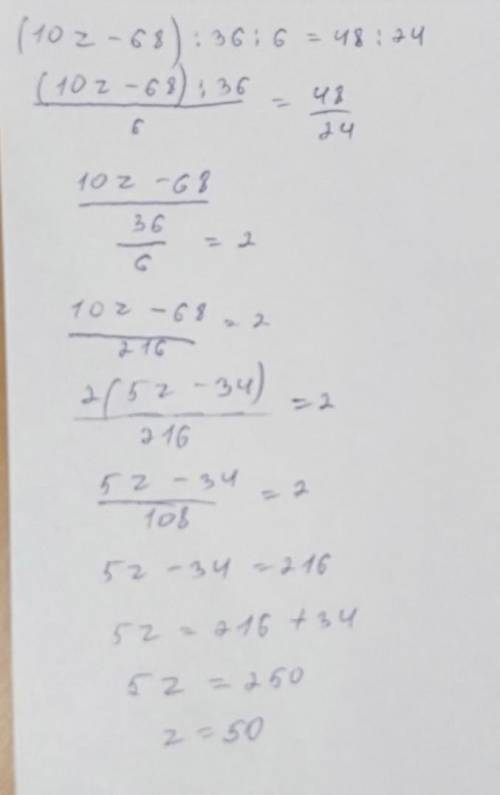 (10z - 68) : 36 : 6 = 48 : 24
(10z - 68) : 36 / 6 = 48 / 24
10z - 68 / 36 / 6 = 2
10z - 68 / 216 = 2
2(5z - 34) / 216 = 2
5z - 34 / 108 = 2
5z - 34 = 216
5z = 216 + 34
5z = 250
z = 50